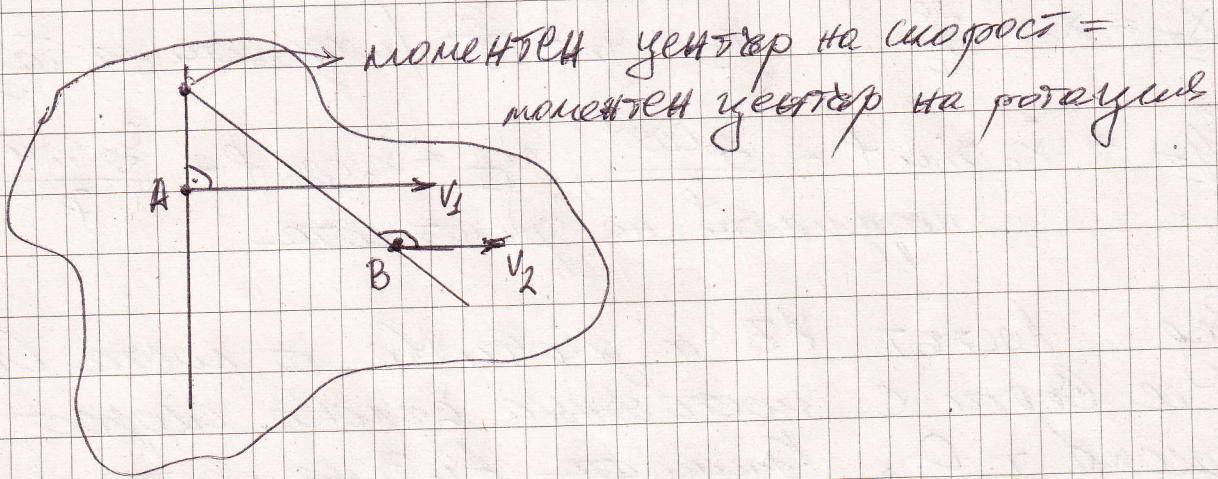 моментен център на скорост =
моментен център на ротация
A
V1
B
V2